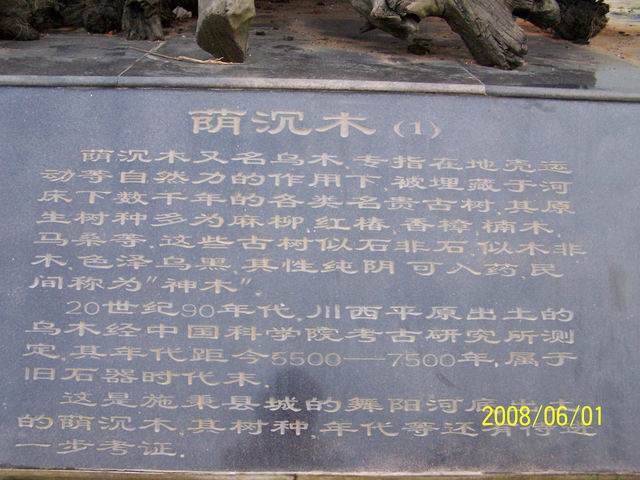 荫沉木(1)
荫沉木又名乌木,专指在地壳运
动等自然力的作用下,被埋藏于河
床下数千年的各类名贵古树,其原
生树种多为麻柳,红椿,香樟,楠木,
马桑等.这些古树似石非石,似木非
木,色泽乌黑,其性纯阴,可入药,民
间称为"神木".
20世纪90年代,川西平原出土的
乌木经中国科学院考古研究所测
定,其年代距今5500——7500年,属于
旧石器时代末.
这是施秉县城的舞阳河底
的荫沉木,其树种,年代等还有待进
一步考证.
2008/06/01